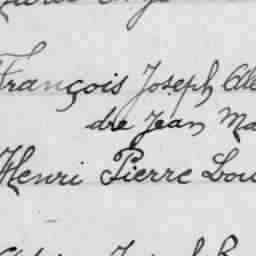 François Joseph Ale
dre Jean Ma
Henri Pierre Lou